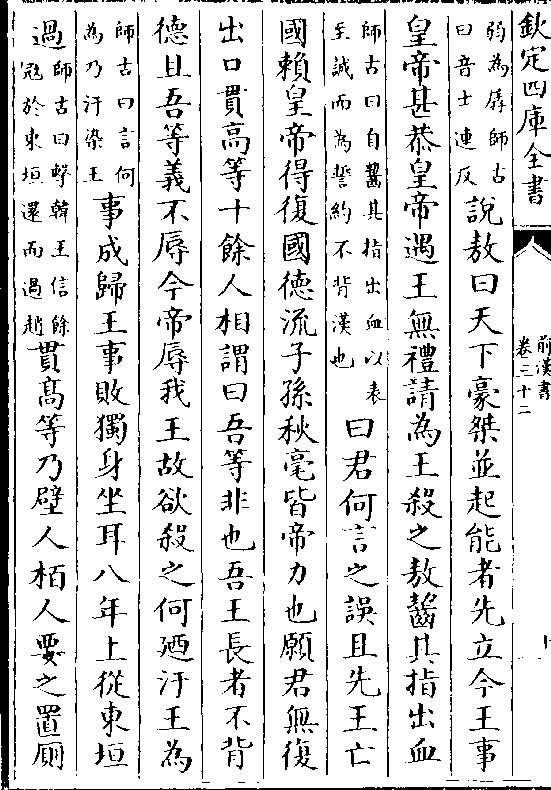 欽定四庫全書
前漢書
卷三十二
十
弱為孱師古
曰音士連反
說敖曰天下豪桀並起能者先立今王事
皇帝甚恭皇帝遇王無禮請為王殺之敖齧其指出血
師古曰自齧其指出血以表
至誠而為誓約不背漢也
曰君何言之誤且先王亡
國賴皇帝得復國德流子孫秋毫皆帝力也願君無復
出口貫高等十餘人相謂曰吾等非也吾王長者不背
德且吾等義不辱今帝辱我王故欲殺之何廼汙王為
師古曰言何
為乃汗染王
事成歸王事敗獨身坐耳八年上從東垣
過
師古曰擊韓王信餘
冦於東垣還而過趙
貫髙等乃壁人栢人要之置厠